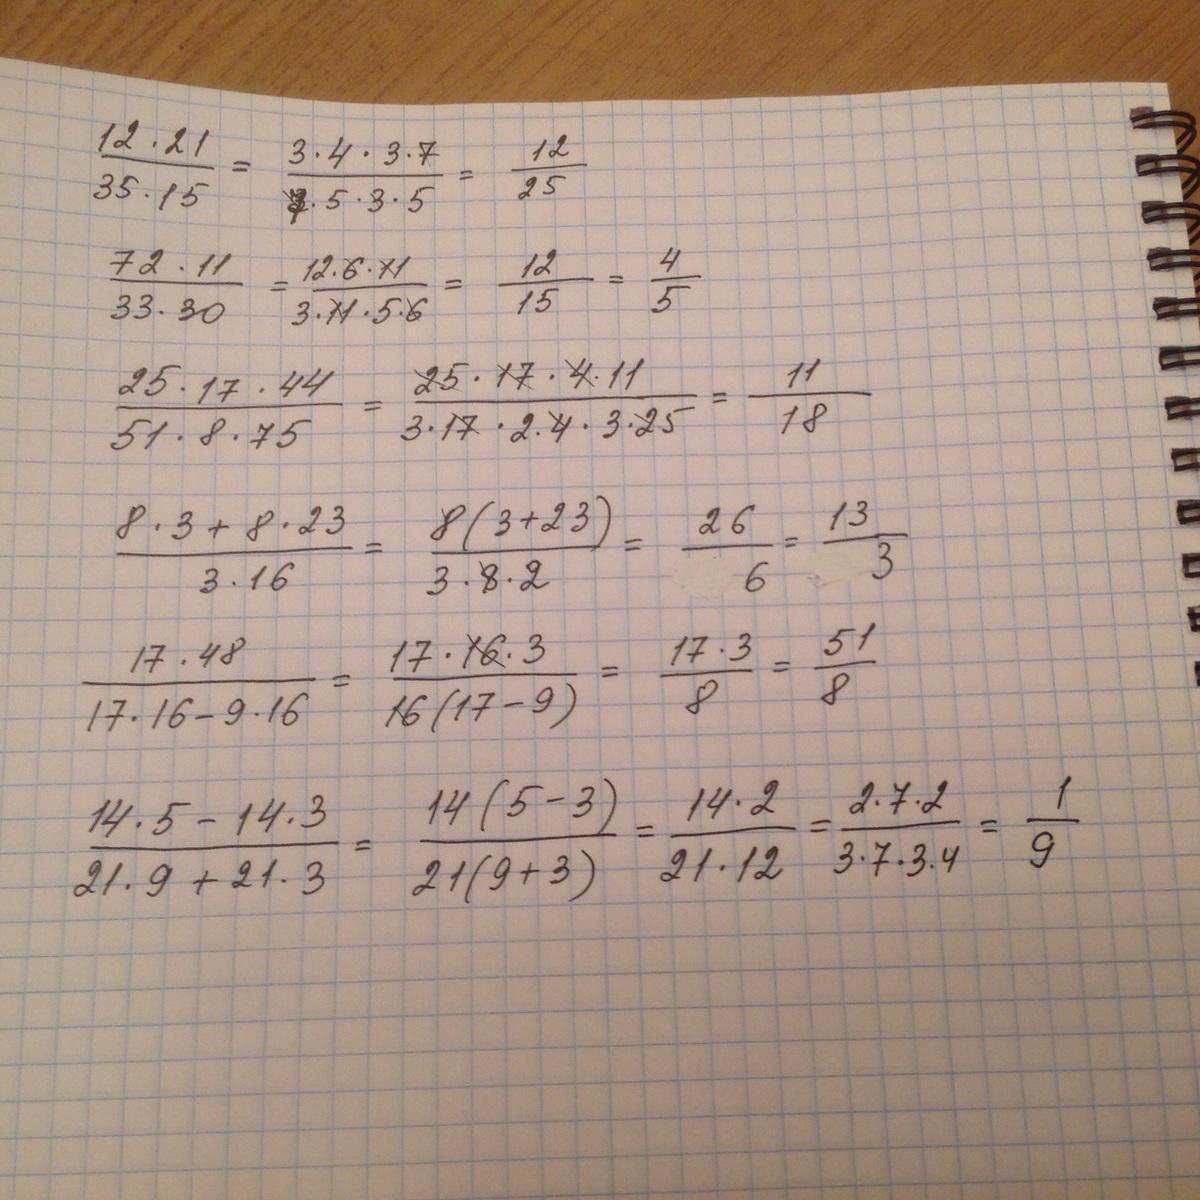 12·21/35·15 = 3·4·3·7/7·5·3·5 = 12/25
72·11/33·30 = 12·6·11/3·11·5·6 = 12/15 = 4/5
25·17·44/51·8·75 = 25·17·4·11/3·17·2·4·3·25 = 11/18
8·3+8·23/3·16 = 8(3+23)/3·8·2 = 26/6 = 13/3
17·48/17·16-9·16 = 17·16·3/16(17-9) = 17·3/8 = 51/8
14·5-14·3/21·9+21·3 = 14(5-3)/21(9+3) = 14·2/21·12 = 2·7·2/3·7·3·4 = 1/9